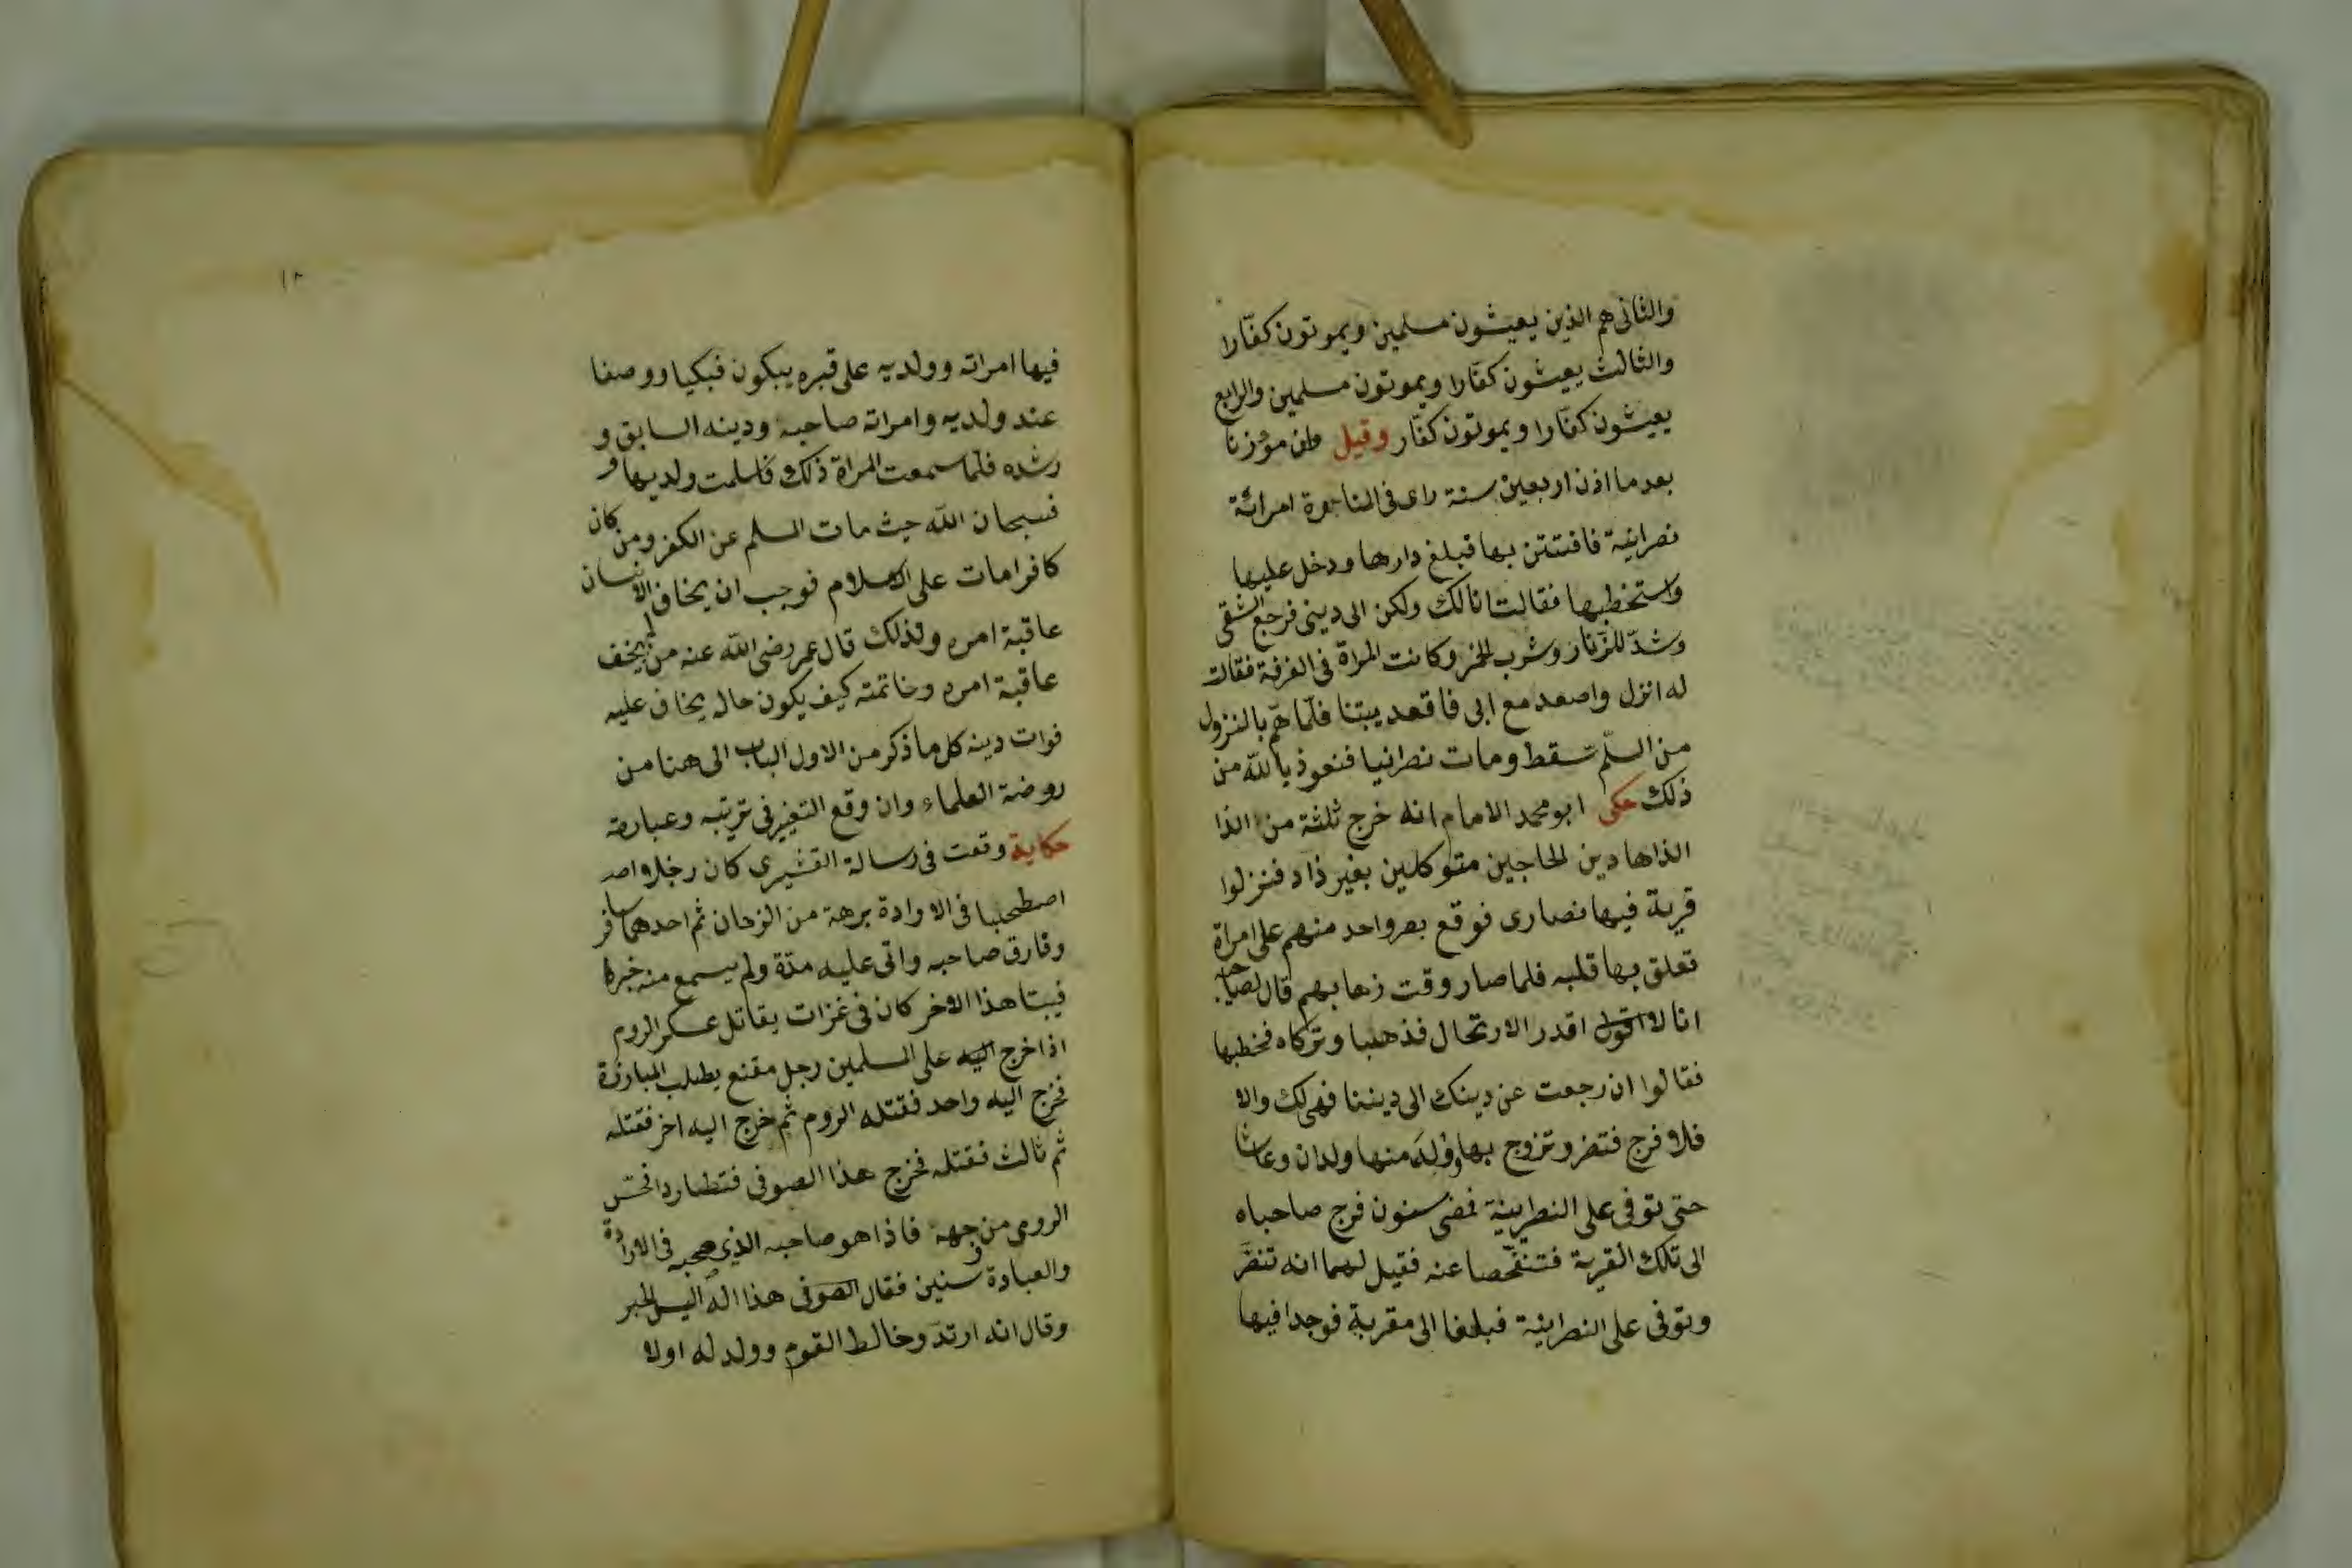 والثانى هم الذين يعيشون مسلمين ويموتون كفّارا
والثالث يعيشون كفّارا ويموتون مسلمين والرابع
يعيشون كفّارا ويموتون كفّار وقيل مؤذنا
بعد ما اذن اربعين سنة راى فى المناجرة امرائة
نصرانية فافتتن بها قبلغ دارها ودخل عليها
واستخطبها فقالت انالك ولكن الى دينى فرجع الشقى
وشدّ للزّنار وشرب الخمر وكانت المراة فى الغرفة فقالت
له انزل واصعد مع ابى فاقعد بيتنا فلمّا همّ بالنزول
من السلّم سقط ومات نصرانيا فنعوذ بالله من
ذلك حكى ابو محمد الامام انه خرج ثلثة من الذا
الذاهادين الحاجين متوكلين بغير ذاد فنزلوا
قرية فيها نصارى فوقع بصر واحد منهم على امراة
تعلق بها قلبه فلما صار وقت ذهابهم قال لصياحبا
انا لا اقول اقدر الارتحال فذهبا وتركاه فخطبها
فقالوا ان رجعت عن دينك الى ديننا فهى لك والا
فلا فرج فتضر وتزوج بها وولد منها ولدان وعاشا
حتى توفى على النصرانية فمضى سنون فرج صاحباه
الى تلك القرية فتنفّحصا عنه فقيل لهما انه تنصّر
وتوفى على النصرانية فبلغا الى مقربة فوجدا فيها
١٨
فيها امراته وولديه على قبره يبكون فبكيا ووصفا
عند ولديه وامراته صاحبه ودينه السابق و
رشده فلمّا سمعت المراة ذلك فاسلمت ولديها و
فسبحان الله حيث مات المسلم عن الكفر ومن كان
كافرا مات على الاسلام فوجب ان يخاف الانسان
عاقبة امره ولذلك قال عمر رضى الله عنه من لم يخف
عاقبة امره وخاتمته كيف يكون حاله يخاف عليه
فوات دينه كل ما ذكر من الاول الباب الى هنا من
روضة العلماء وان وقع التغير فى ترتبه وعبارته
حكاية وقعت فى رسالة القشيرى كان رجلا واصد
اصطحبا فى الاوادة برهة من الزمان ثم احدهما سافر
وفارق صاحبه واتى عليه مدّة ولم يسمع منه خبرا
فبيتا هذا الاخر كان فى غزات يقاتل عسكر الروم
اذا خرج اليه على المسلمين رجل مقنع يطلب المبارزة
فخرج اليه واحد فقتله الروم ثم خرج اليه اخر فقتله
ثم ثالث فقتله فخرج هذا الصوفى فتطاردا فحسّر
الرومى من وجهه فاذا هو صاحبه الذى صحبه فى الارادة
والعبادة سنين فقال الصوفى هذا اله اليس الخبر
وقال انه ارتدّ وخالط القوم وولد له اولا